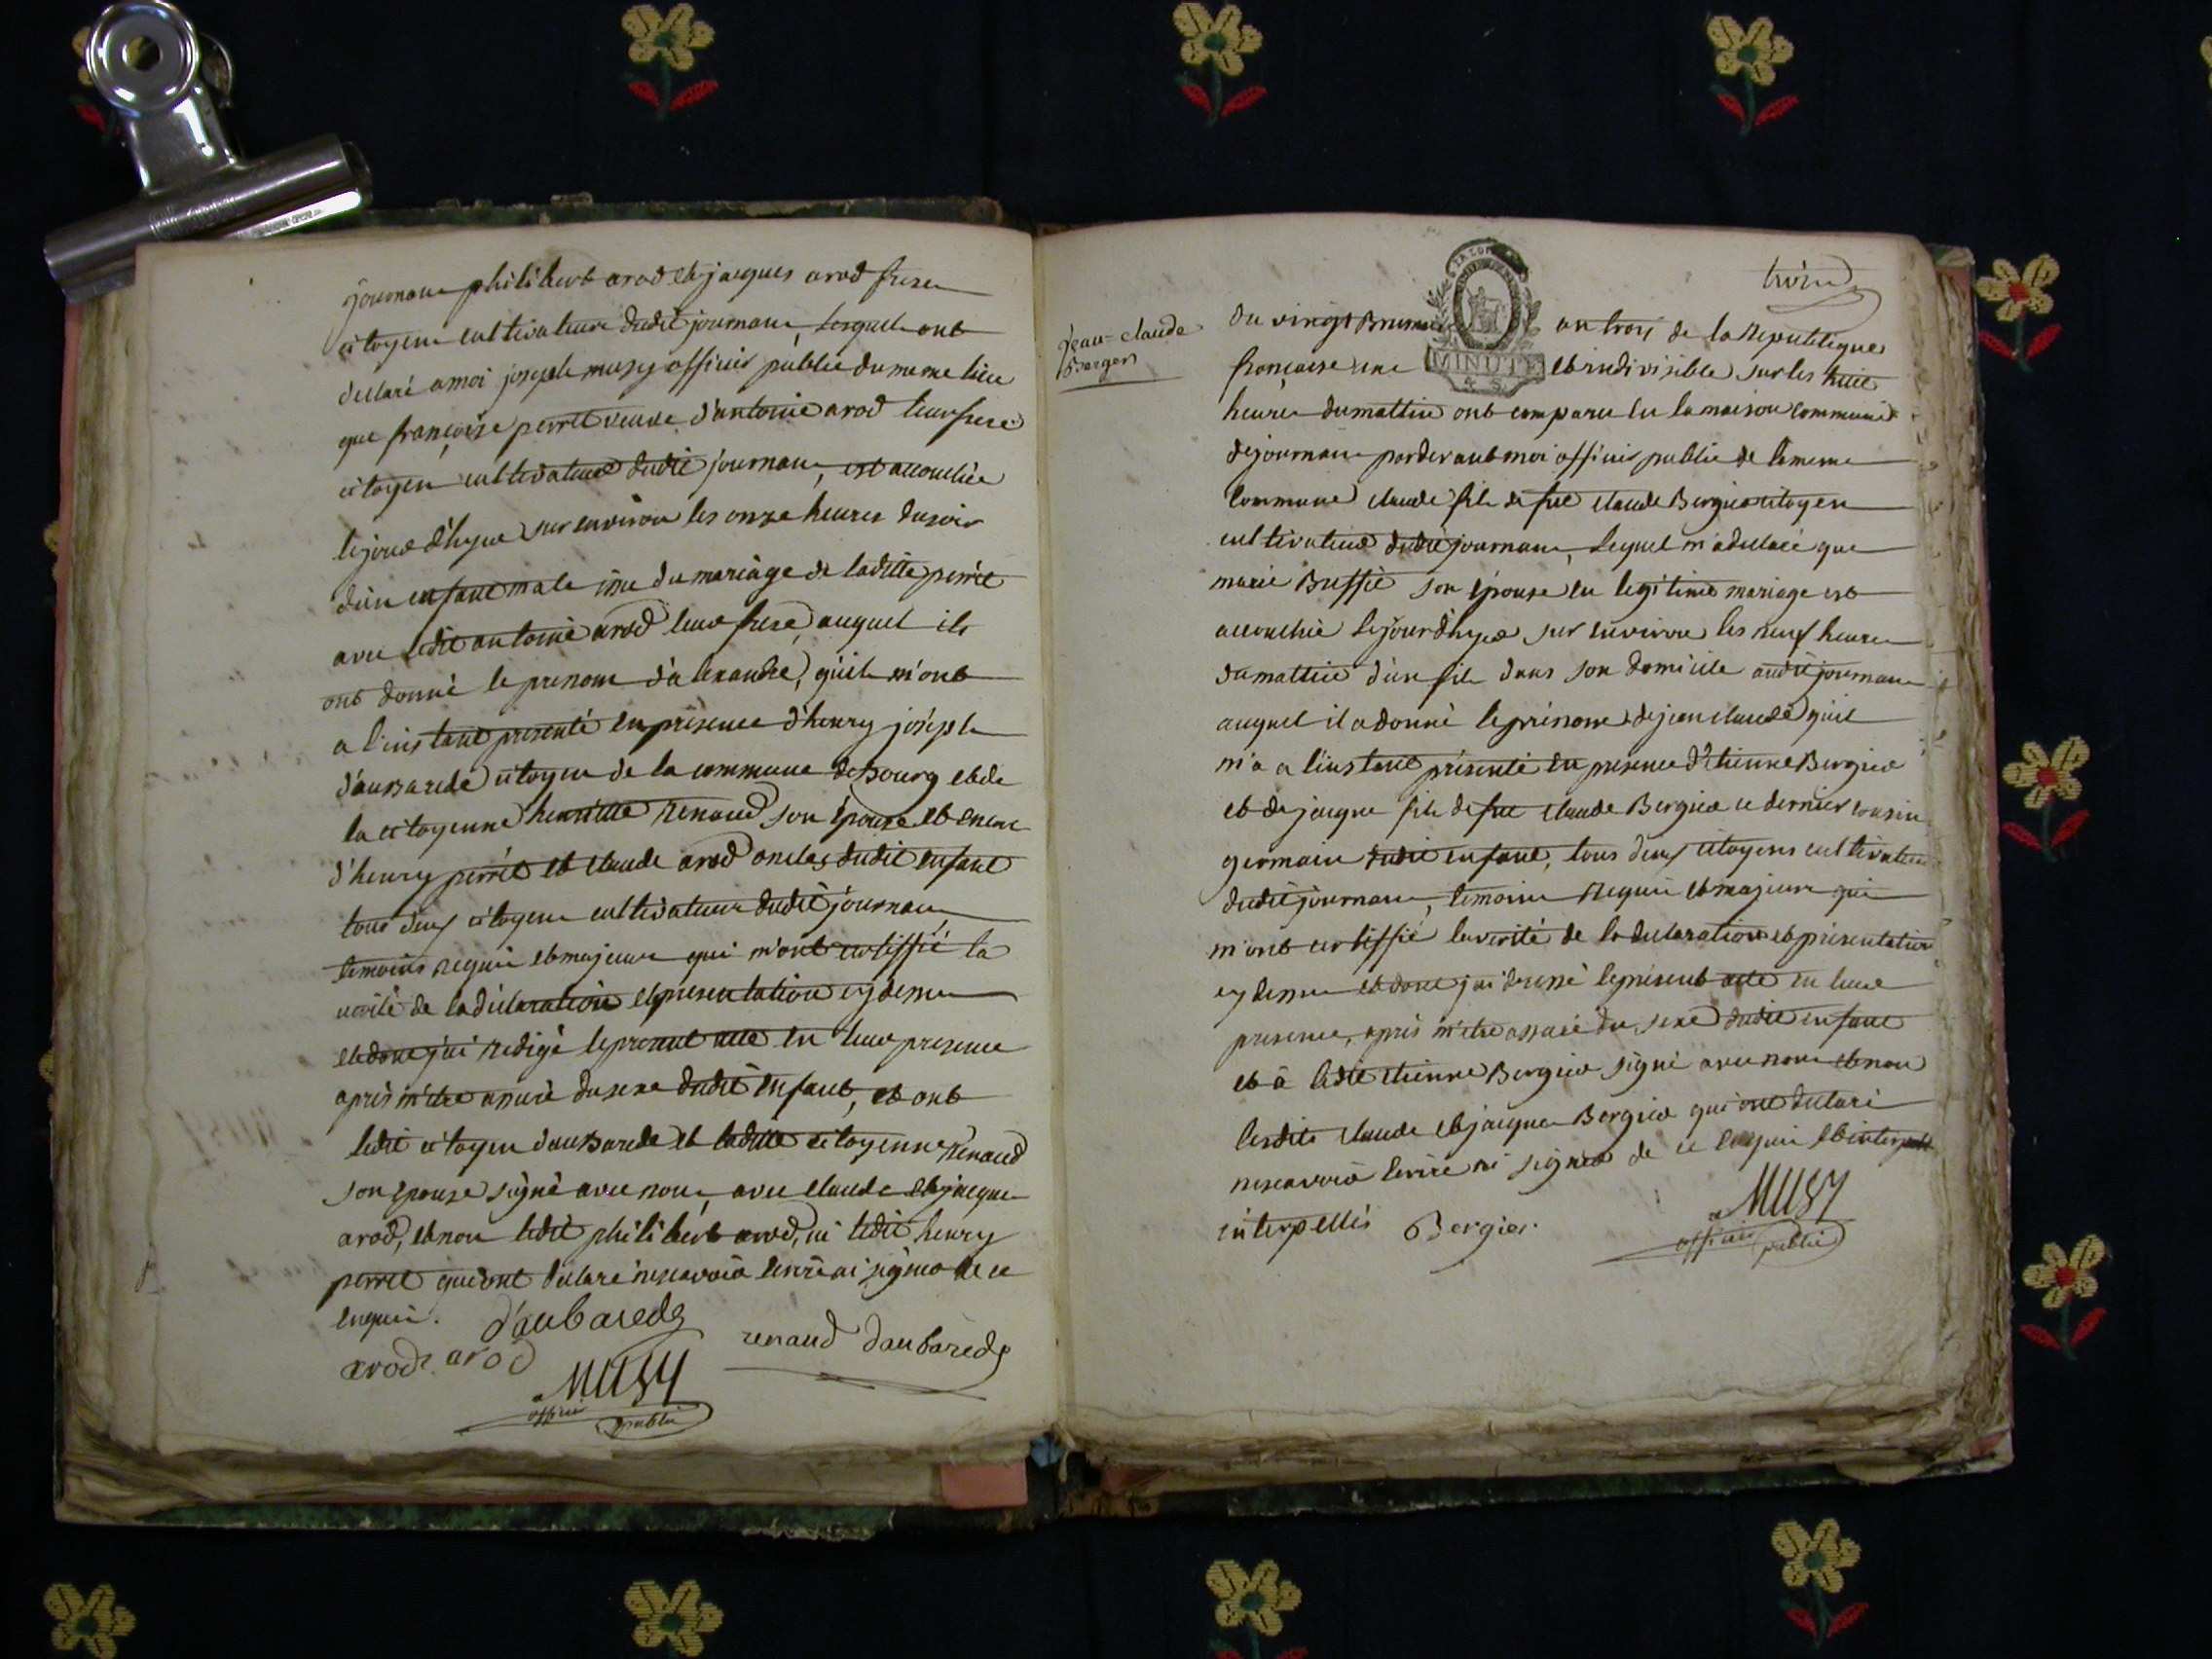 journans philibert arod et jacques arod freres
citoyens cultivateurs dudit journans, lesquels ont
declaré a moi joseph musy officier public du meme lieu
que françoise perret veuve d'antoine arod leur frere
citoyen cultivateur dudit journans, est accouchée
le jour d'hyer sur environ les onze heures du soir
d'un enfant male issu du mariage de laditte perret
avec ledit antoine arod leur frere, auquel ils
ont donné le prenom d'alexandre, qu'ils m'ont
a l'instant presenté en presence d'henry joseph
d'aubarede citoyen de la commune de bourg et de
la citoyenne henriette Renaud son épouse et encore
d'henry perret et claude arod oncles dudit enfant
tous deux citoyens cultivateurs dudit journans,
temoins requis et majeurs qui m'ont certiffié la
verité de la déclaration et presentation cy dessus
et dont j'ai redigé le present acte en leur presence
après m'etre assuré du sexe dudit enfant, et ont
ledit citoyen d'aubarede et laditte citoyenne Renaud
son épouse signé avec nous, avec claude et jacques
arod, et non ledit philibert arod, ni ledit henry
perret qui ont déclaré ne scavoir écrire ni signer de ce
enquis. d'aubarede
arod arod renaud daubarede
Musy
officier public
trois
jean-claude
Berger
du vingt Brumaire an trois de la Republique
MINUTE
française une et indivisible sur les huit
heures du mattin ont comparu en la maison commune
de journans par devant moi officier public de la meme
commune claude fils de feu claude Bergier citoyen
cultivateur dudit journans, lequel m'a declaré que
marie Buffié son épouse en legitime mariage est
accouchée le jour d'hyer sur environ les neuf heures
du mattin d'un fils dans son domicile audit journans
auquel il a donné le prénom de jean claude qu'il
m'a a l'instant présenté en presence d'etienne Bergier
et de jacques fils de feu claude Bergier ce dernier cousin
germain dudit enfant, tous deux citoyens cultivateurs
dudit journans, temoins requis et majeurs qui
m'ont certiffié la verité de la declaration et présentation
cy dessus et dont j'ai dressé le présent acte en leur
presence, après m'etre assuré du sexe dudit enfant
et à ledit etienne Bergier signé avec nous et non
lesdits claude et jacques Bergier qui ont declaré
ne scavoir écrire ni signer de ce enquis et interpell
interpellés Bergier
Musy
officier public